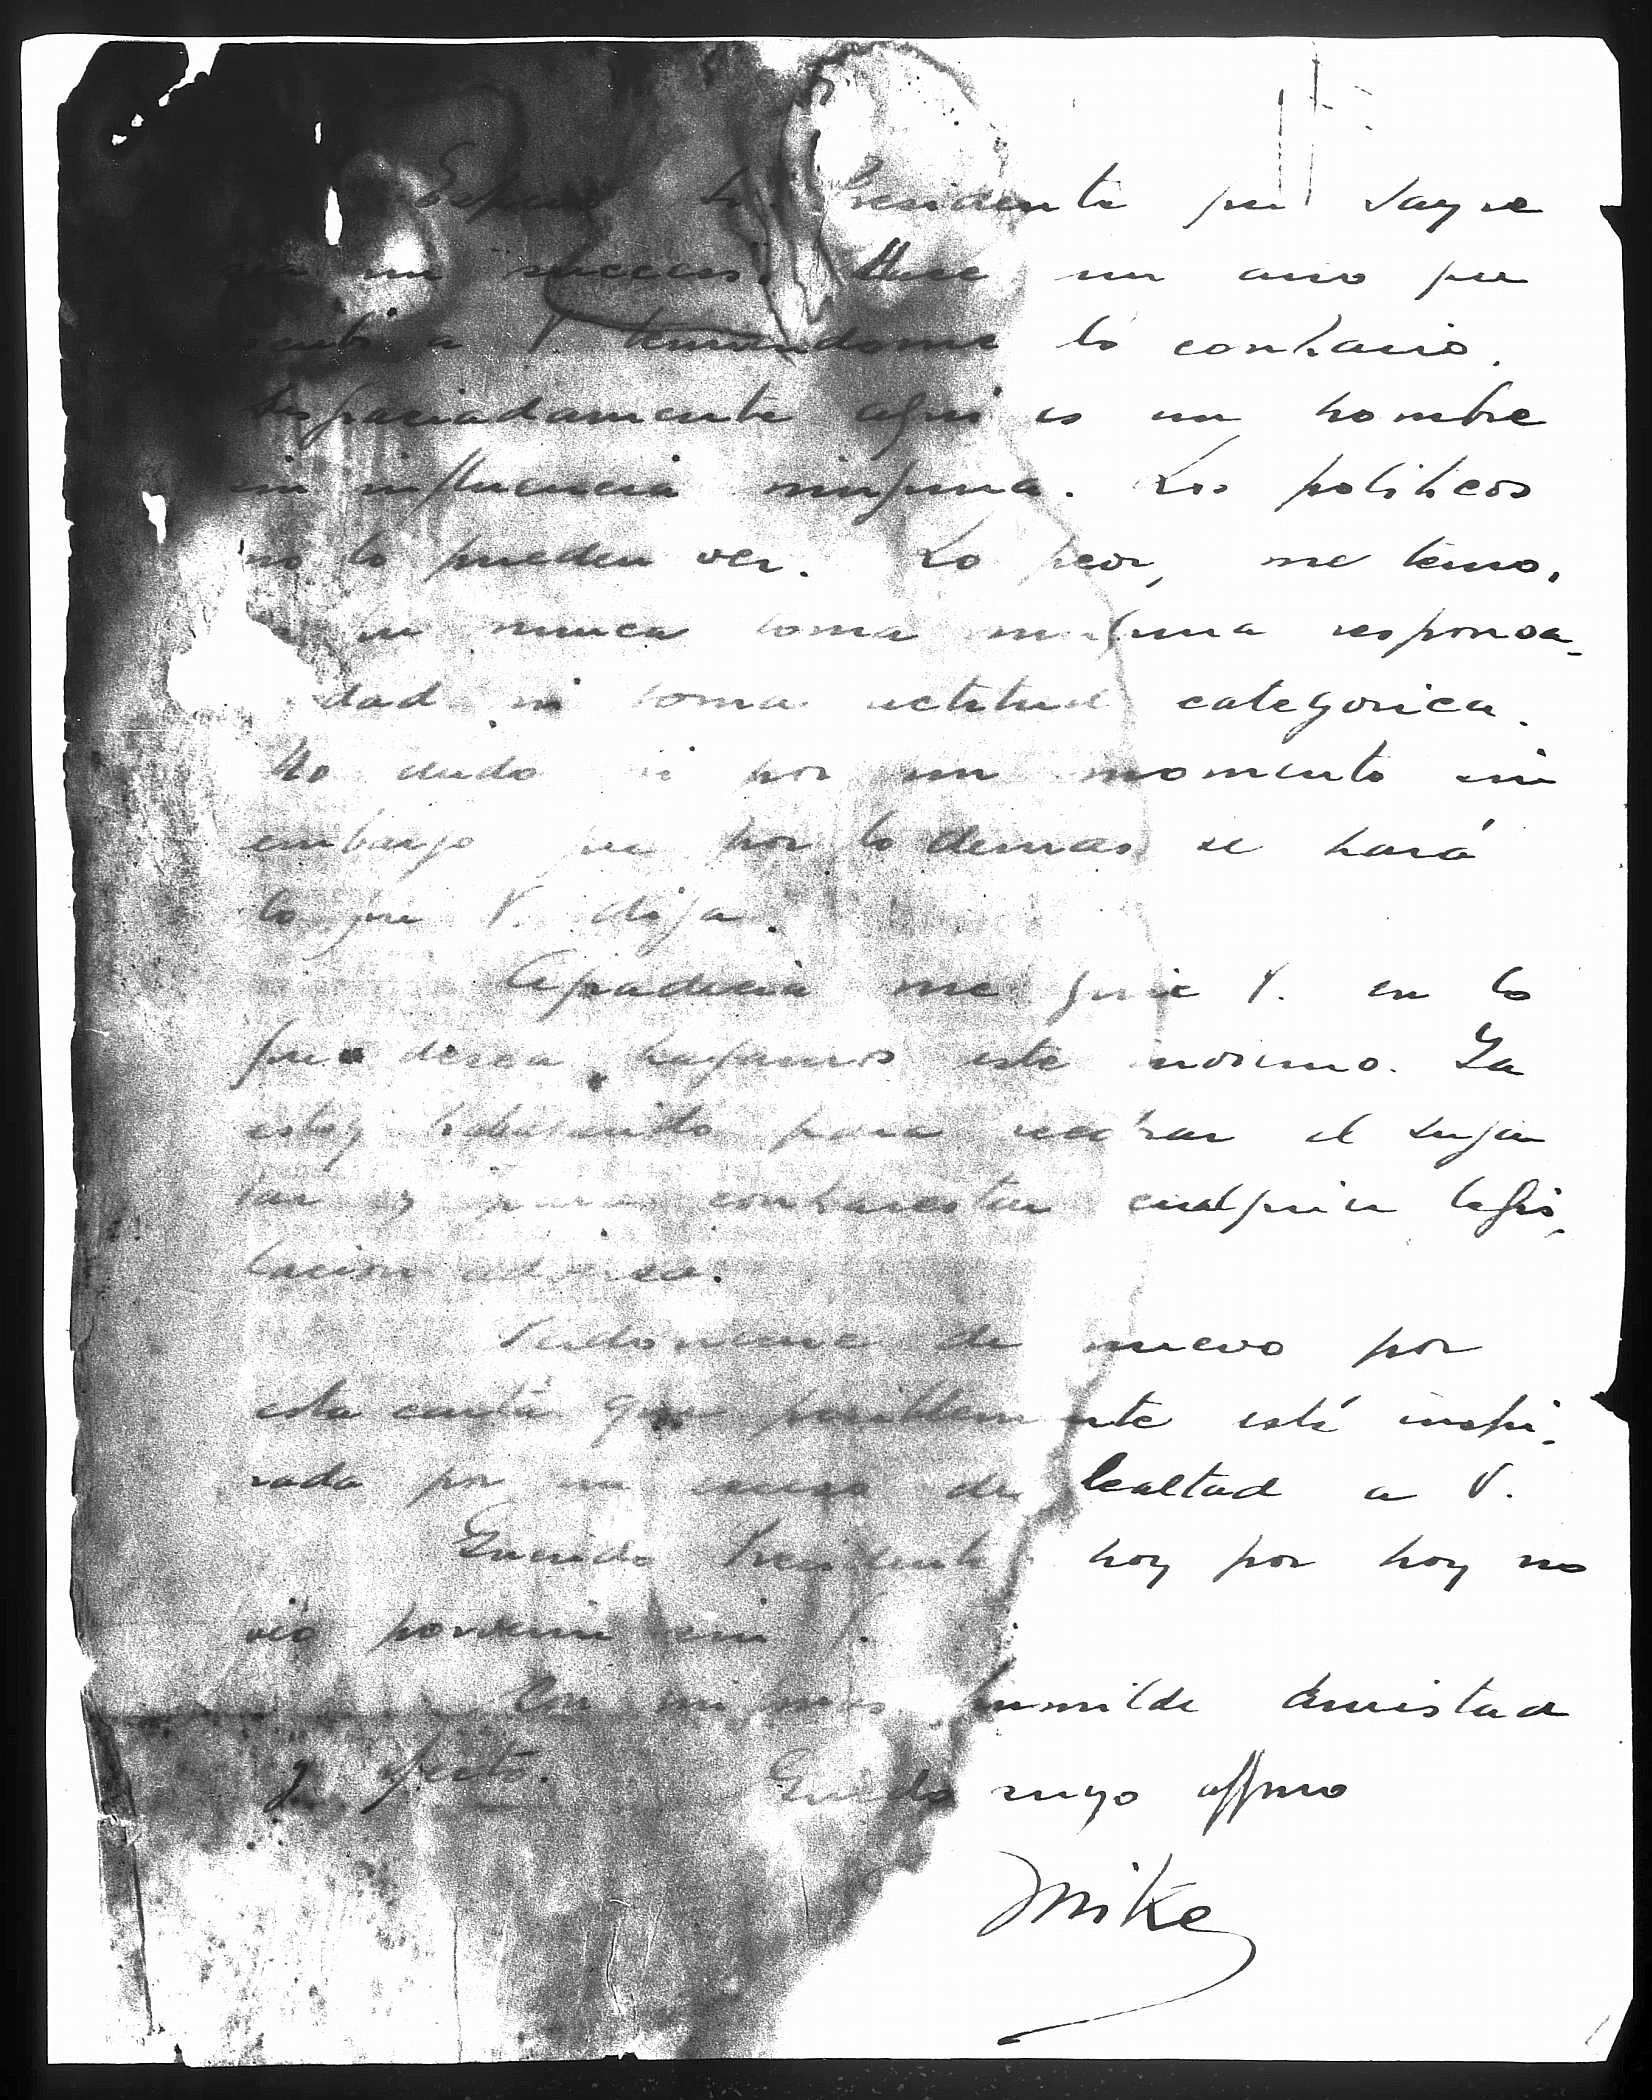 Espero Sr. Presidente que Sayre
sea un success. Hace un año que
escribí a V. temiéndome lo contrario.
Desgraciadamente aqui es un hombre
sin influencia ninguna. Los politicos
no lo pueden ver. Lo peor, me temo,
que nunca toma ninguna responsa-
dad ni toma actitud categorica.
No dudo ni por un momento sin
embargo que por lo demas se hará
lo que V. diga.
Agradecería me guie V. en lo
que desea hagamos este proximo. Ya
estoy trabajando para el
y para contrarestar cualquier legis-
lacion adversa.
Perdoneme de nuevo por
esta carta que posiblemente está inspi-
rada por un de lealtad a V.
Querido Presidente hoy por hoy no
veo porvenir sin V.
Con mi mas humilde amistad
y afecto. Quedo suyo affmo
Mike